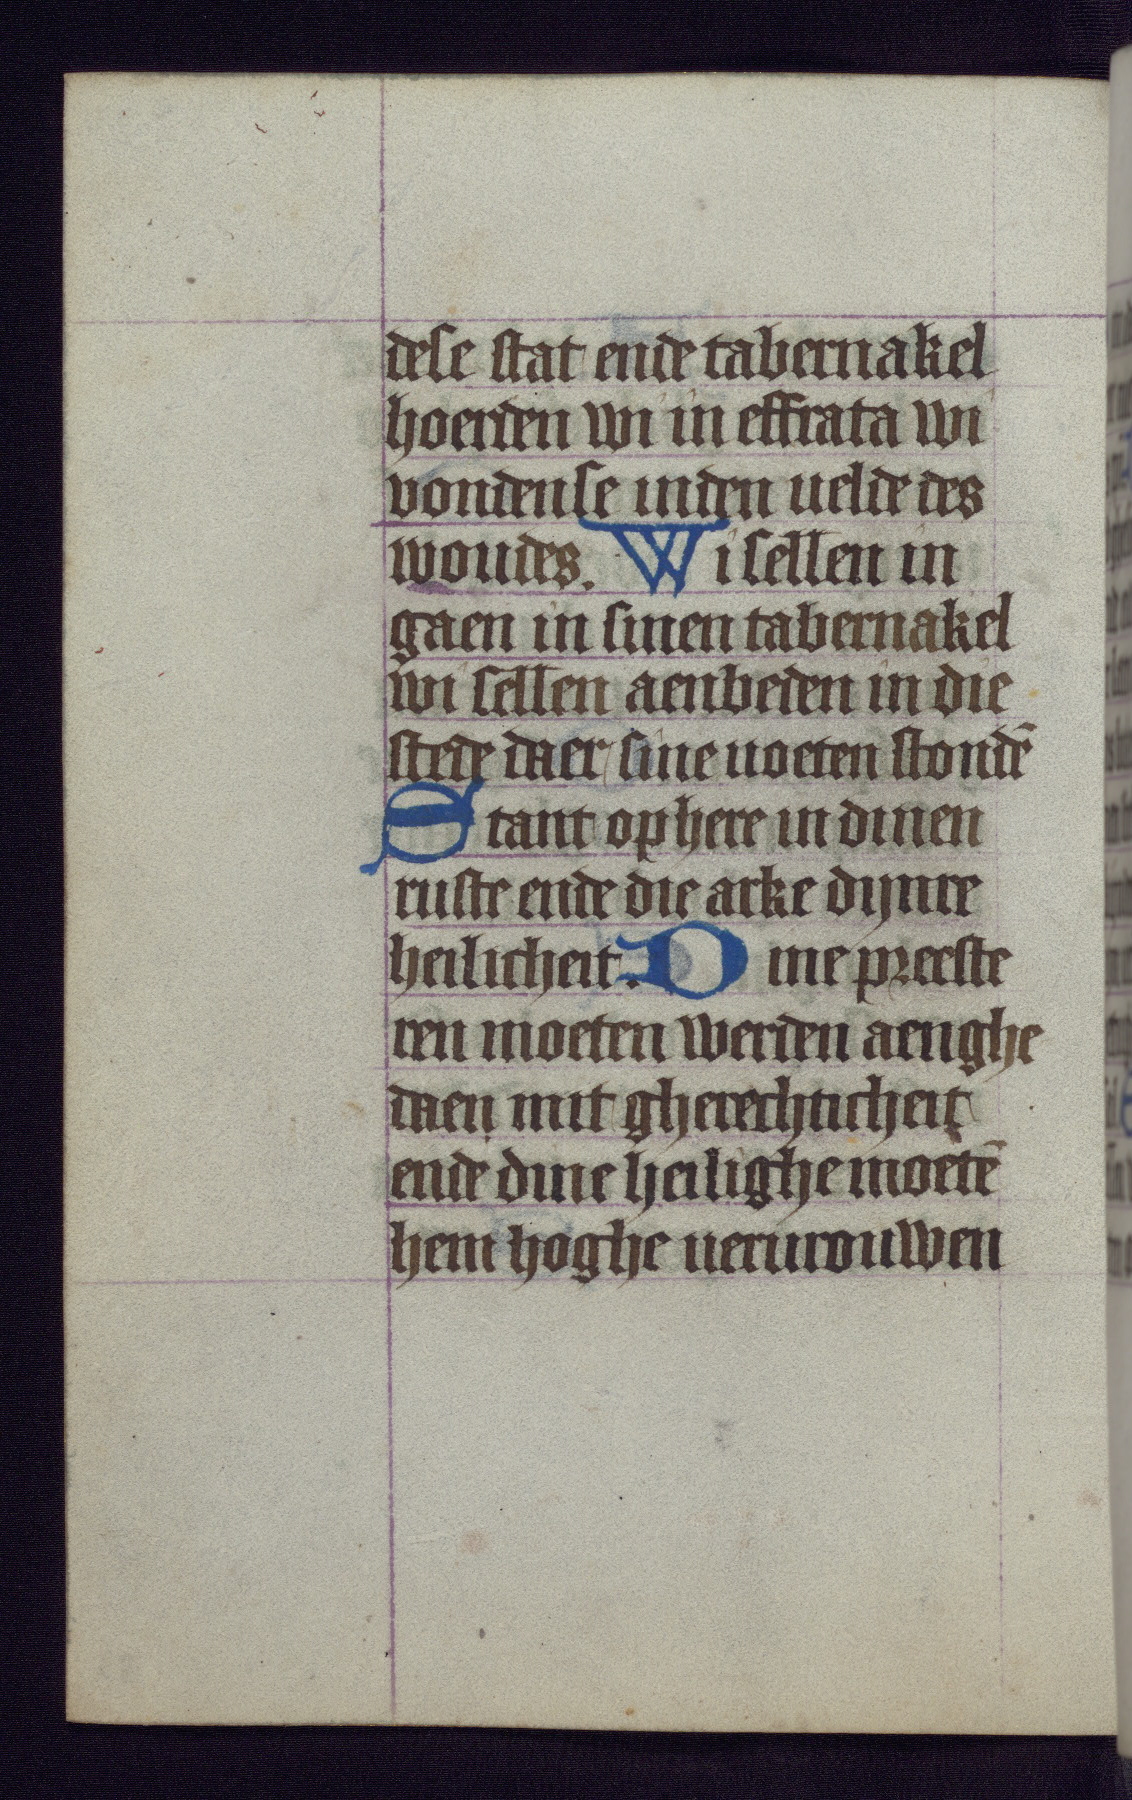 dese stat ende tabernakel
hoerden wi in effrata wi
vondense inden uelde des
woudes. Wi sellen in
gaen in sinen tabernakel
wi sellen aenbeden in die
stede daer sine uoeten stondē
Stant op here in dinen
ruste ende die arke dijnre
heilicheit. Dine preeste
ren moeten werden aenghe
daen mit gherechticheit
ende dine heilighe moetē
hem hoghe uerurouwen